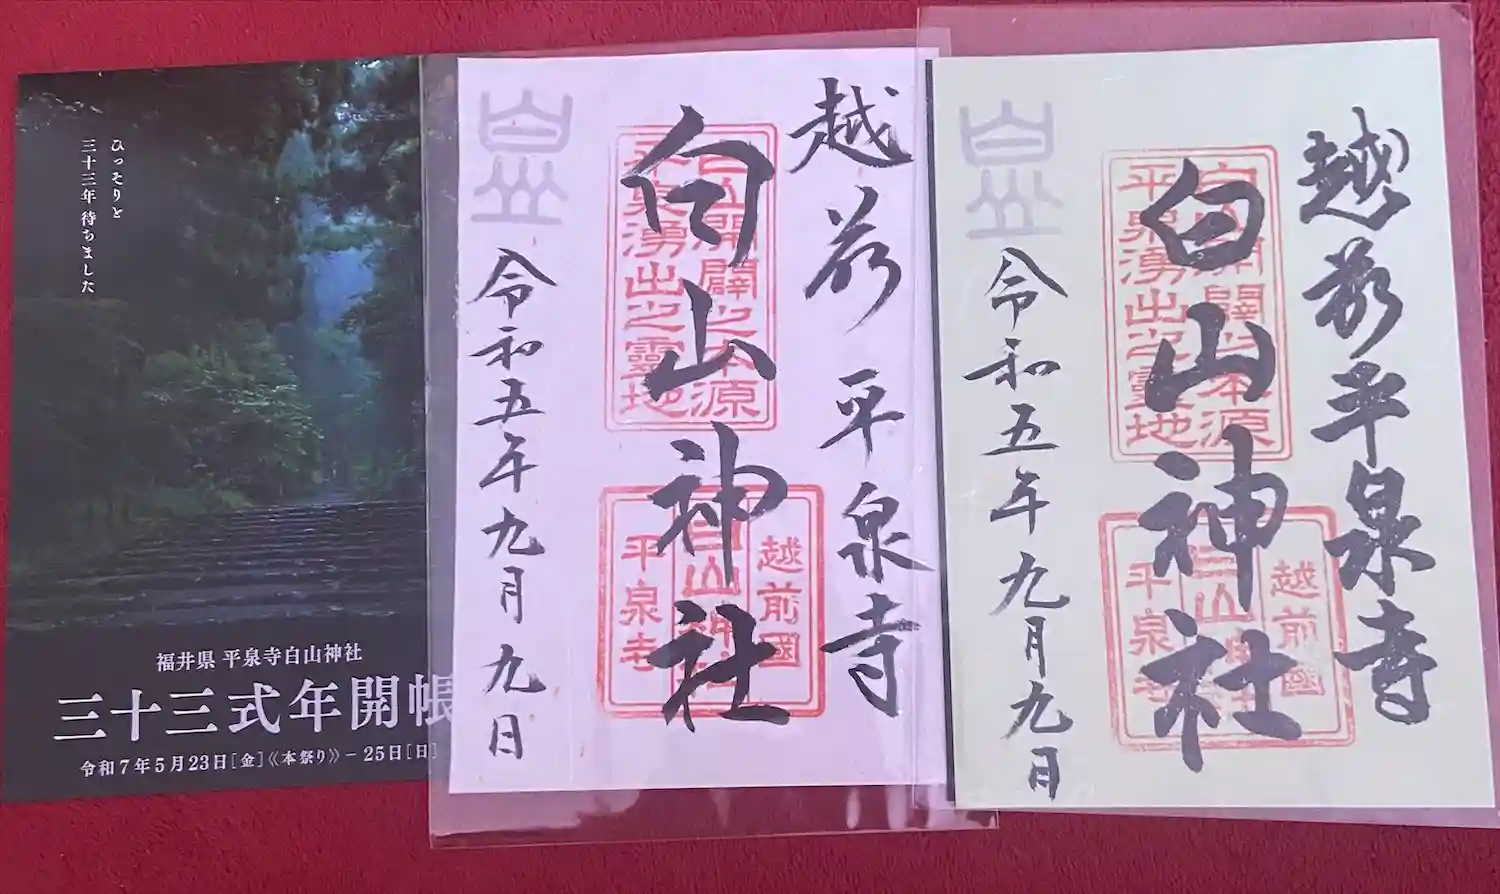 ひっそりと
三十三年 待ちました
福井県 平泉寺白山神社
三十三式年開帳
令和7年5月23日[金]《本祭り》－25日[日]
越前 平泉寺
白山神社
令和五年九月九日
白山開闢之本源
平泉湧出之靈地
越前國
白山神社
平泉寺
越前平泉寺
白山神社
令和五年九月九日
白山開闢之本源
平泉湧出之靈地
越前國
白山神社
平泉寺